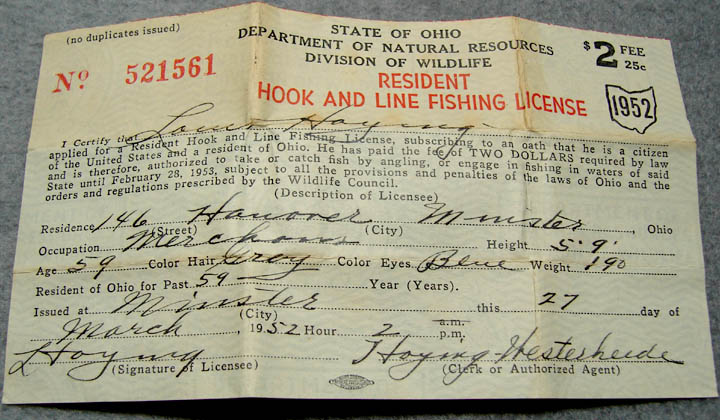 (no duplicates issued)
STATE OF OHIO
DEPARTMENT OF NATURAL RESOURCES
DIVISION OF WILDLIFE
$2 FEE
25c
No. 521561
RESIDENT
HOOK AND LINE FISHING LICENSE
1952
I Certify that Louis Hoying
applied for a Resident Hook and Line Fishing License, subscribing to an oath that he is a citizen
of the United States and a resident of Ohio. He has paid the fee of TWO DOLLARS required by law
and is therefore, authorized to take or catch fish by angling, or engage in fishing in waters of said
State until February 28, 1953, subject to all the provisions and penalties of the laws of Ohio and the
orders and regulations prescribed by the Wildlife Council.
(Description of Licensee)
Residence 146 Hanover Minster, Ohio
(Street) (City)
Occupation Merchant Height 5' 9"
Age 59 Color Hair Gray Color Eyes Blue Weight 190
Resident of Ohio for Past 59 Year (Years).
Issued at Minster this 27 day of
(City)
March, 1952 Hour 2 a.m.
p.m.
L Hoying Hoying Westerheide
(Signature of Licensee) (Clerk or Authorized Agent)